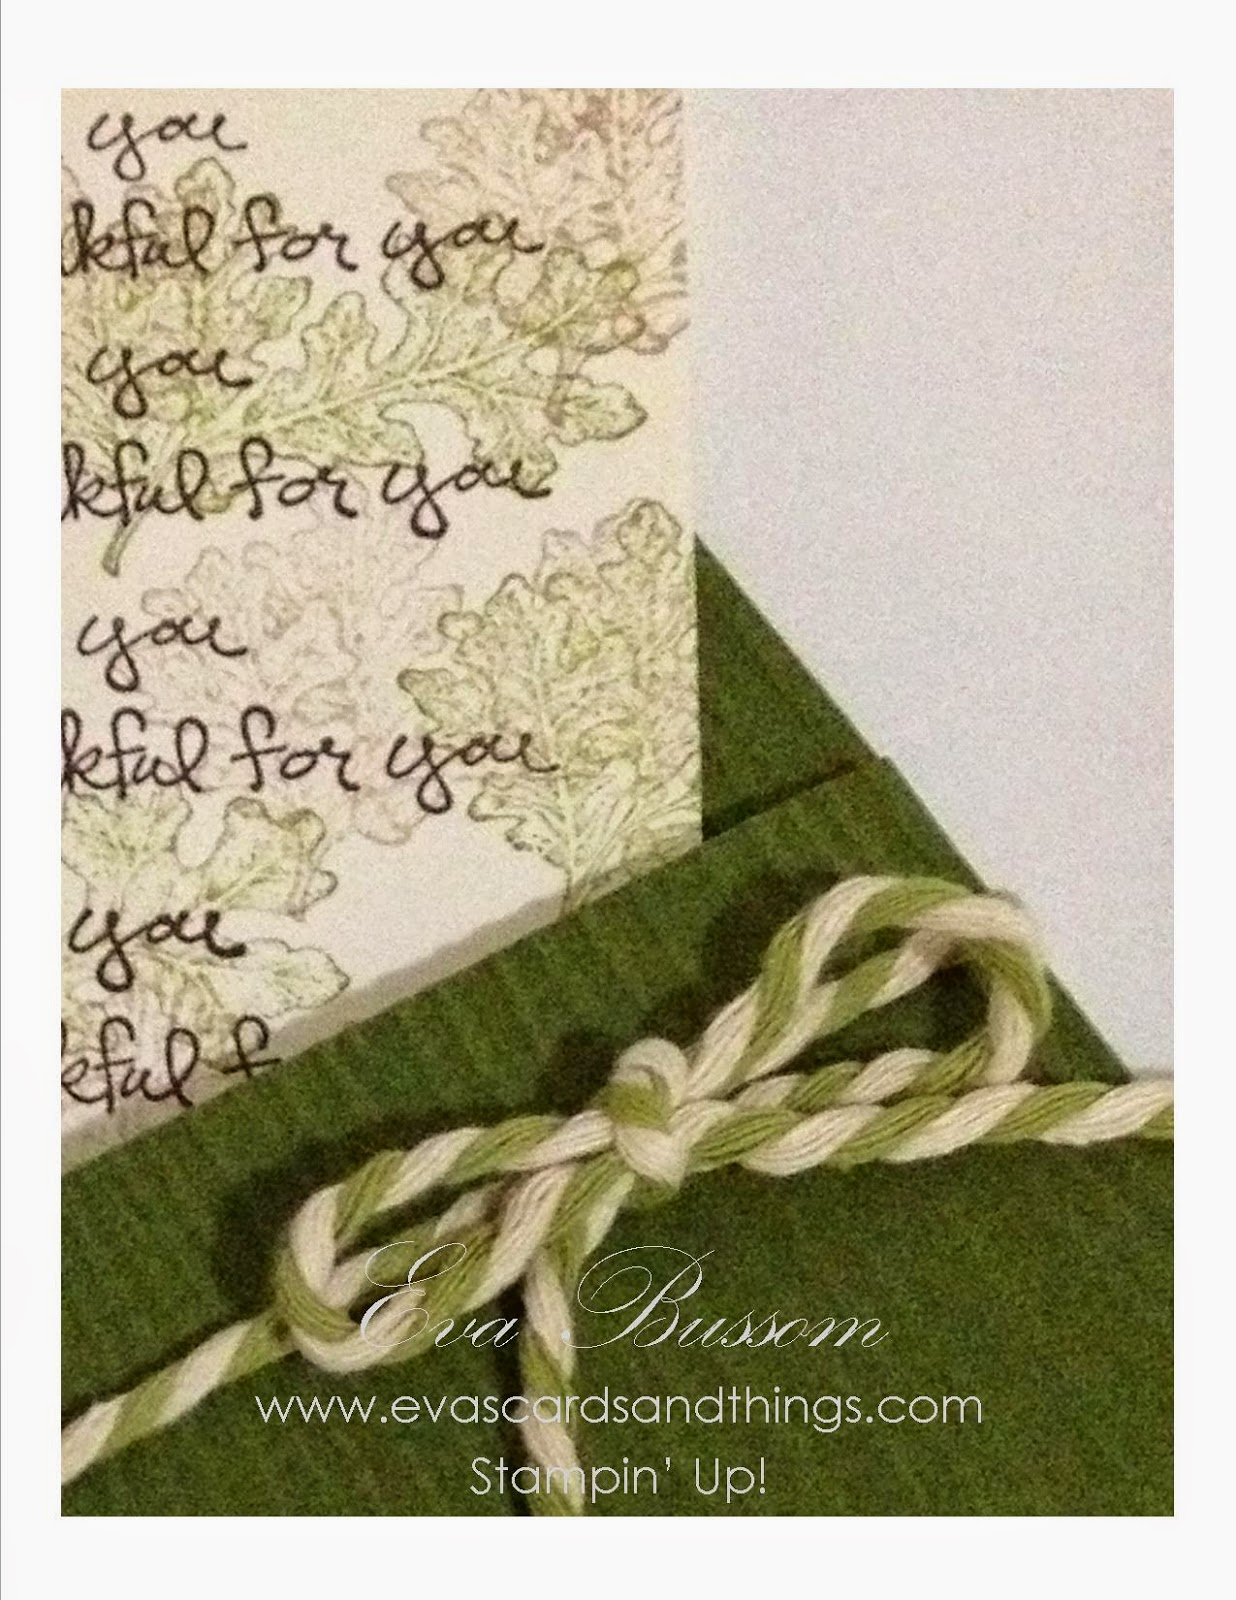 you
kful for you
you
kful for you
you
kful for you
you
kful f
Eva Bussom
www.evascardsandthings.com
Stampin' Up!